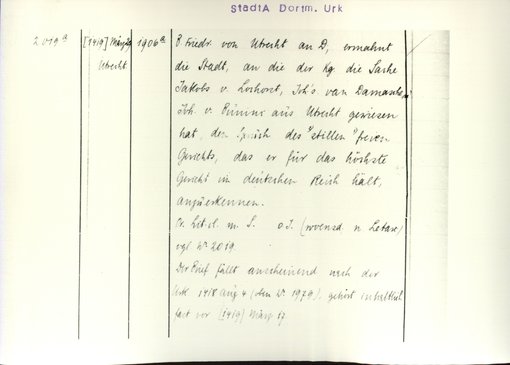 StadtA Dortm. Urk
2019a [1419] März 29 1906a B Friedr. von Utrecht an D, ermahnt
Utrecht die Stadt, an die der Kg. die Sache
Jakobs v. Lochorst, Joh's. van Damasche u.
Joh. v. aus Utrecht gewiesen
hat, den Spruch des "stillen" freien
Gerichts, das er für das höchste
Gericht im deutschen Reich hält,
anzuerkennen.
Or. Lit. cl. m. S. o.J. n Letare)
vgl. Nr 2019.
Der Brief fällt anscheinend nach der
Urk. 1418 Aug 4 (oben Nr 1979), gehört inhaltlich
fast vor [1419] März 17